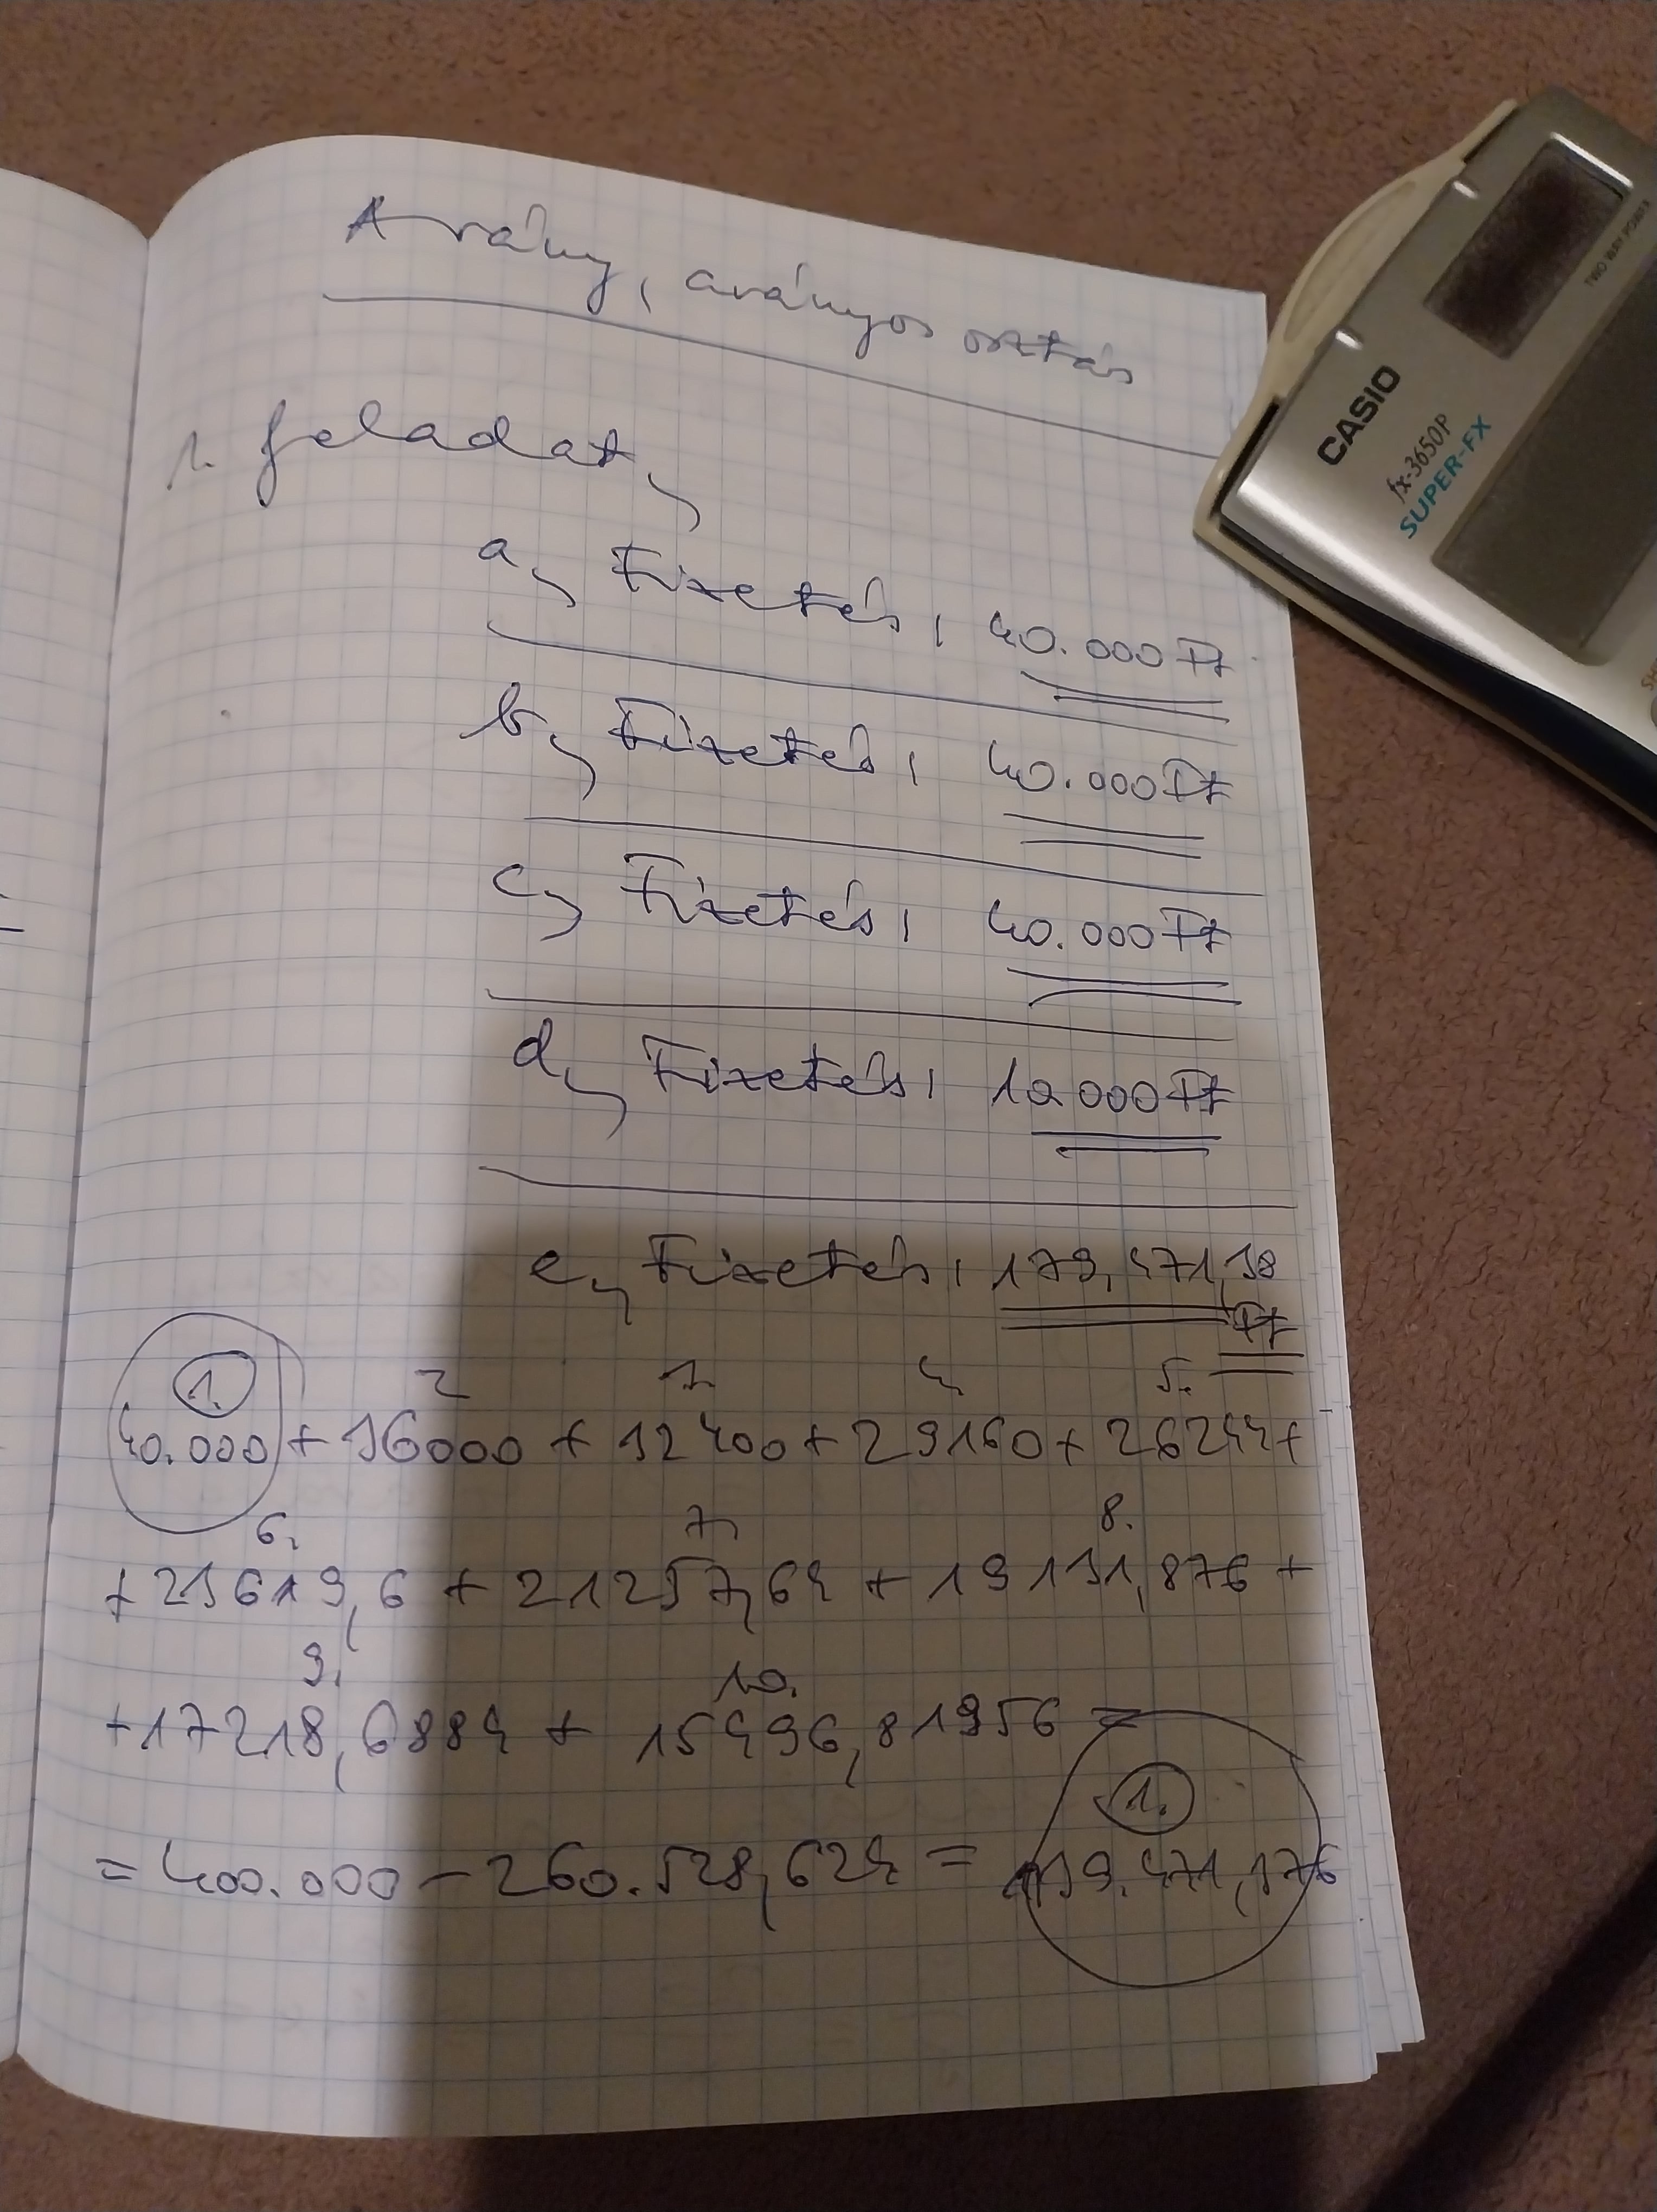 Arány, arányos osztás
1. feladat,
a, Fizetés: 40.000 Ft
b, Fizetés: 40.000 Ft
c, Fizetés: 40.000 Ft
d, Fizetés: 10.000 Ft
e, Fizetés: 179.471,38
Ft
1. 2 3. 4. 5.
40.000 + 36000 + 32400 + 29160 + 26244 +
6. 7. 8.
+ 23619,6 + 21257,64 + 19131,876 +
9. 10.
+ 17218,6884 + 15496,81956 =
1.
= 400.000 - 260.528,624 = 139.471,376
CASIO
fx-3650P
SUPER-FX
TWO WAY POWER